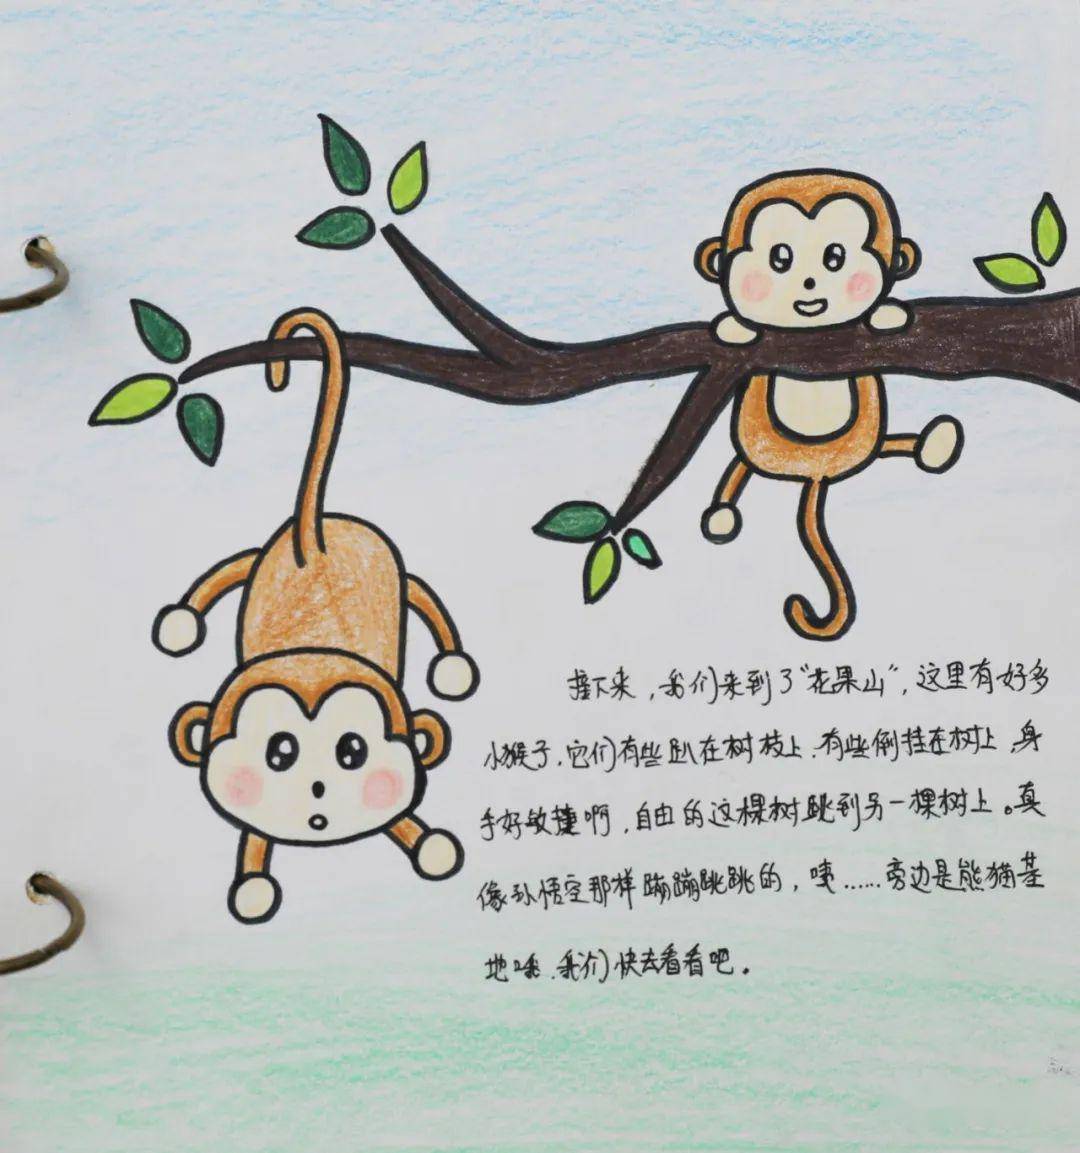 接下来，我们来到了“花果山”，这里有好多
小猴子，它们有些趴在树枝上，有些倒挂在树上，身
手好敏捷啊，自由的这棵树跳到另一棵树上。真
像孙悟空那样蹦蹦跳跳的，咦……旁边是熊猫基
地哦，我们快去看看吧。